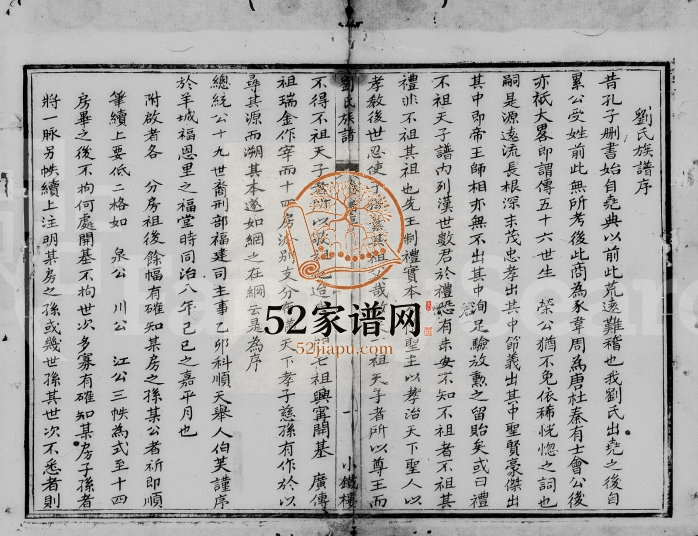 劉氏族譜序
昔孔子刪書始自堯典以前此荒遠難稽也我劉氏出堯之後自
累公受姓前此無所考後此商為豕韋周為唐杜秦有士會公後
亦祇大畧即謂傳五十六世生 榮公猶不免依稀恍惚之詞也
嗣是源遠流長根深末茂忠孝出其中節義出其中聖賢豪傑出
其中即帝王師相亦無不出其中洵足驗放勲之留貽矣或曰禮
不祖天子譜內列漢世數君於禮恐有未安不知不祖者不祖其
禮非不祖其祖也先王制禮實本 聖主以孝治天下聖人以
孝教後世忍使子孫 其祖 哉 祖天子者所以尊王而
不得不祖天子 所以 造 七祖興甯開基 廣傳
祖瑞金作宰而十四房派別支分 天下孝子慈孫有作於以
尋其源而溯其本遂如網之在綱云是為序
總統公十九世裔刑部福建司主事乙卯科順天舉人伯芙謹序
於羊城福恩里之福堂時同治八年己巳之嘉平月也
附啟者各 分房祖後餘幅有確知某房之孫某公者祈即順
筆續上要低二格如 泉公 川公 江公三帙為式至十四
房畢之後不拘何處開基不拘世次多寡有確知某房子孫者
將一脉另帙續上注明某房之孫或幾世孫其世次不悉者則
劉氏族譜
一
小鐵樓
52家谱网
52jiapu.com